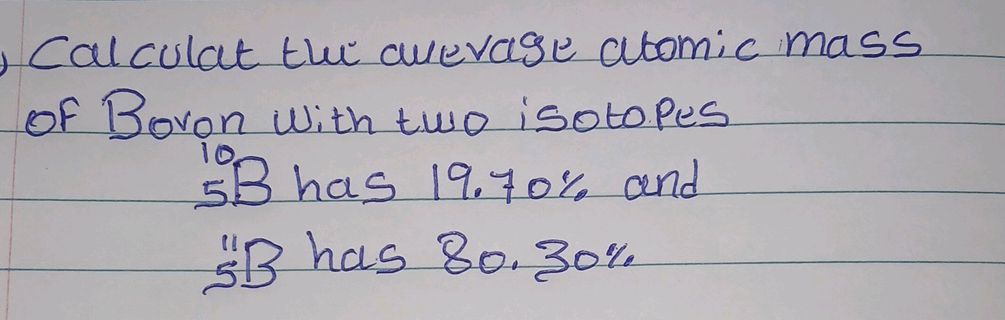 Calculat the average atomic mass
of Boron with two isotopes
¹⁰₅B has 19.70% and
¹¹₅B has 80.30%